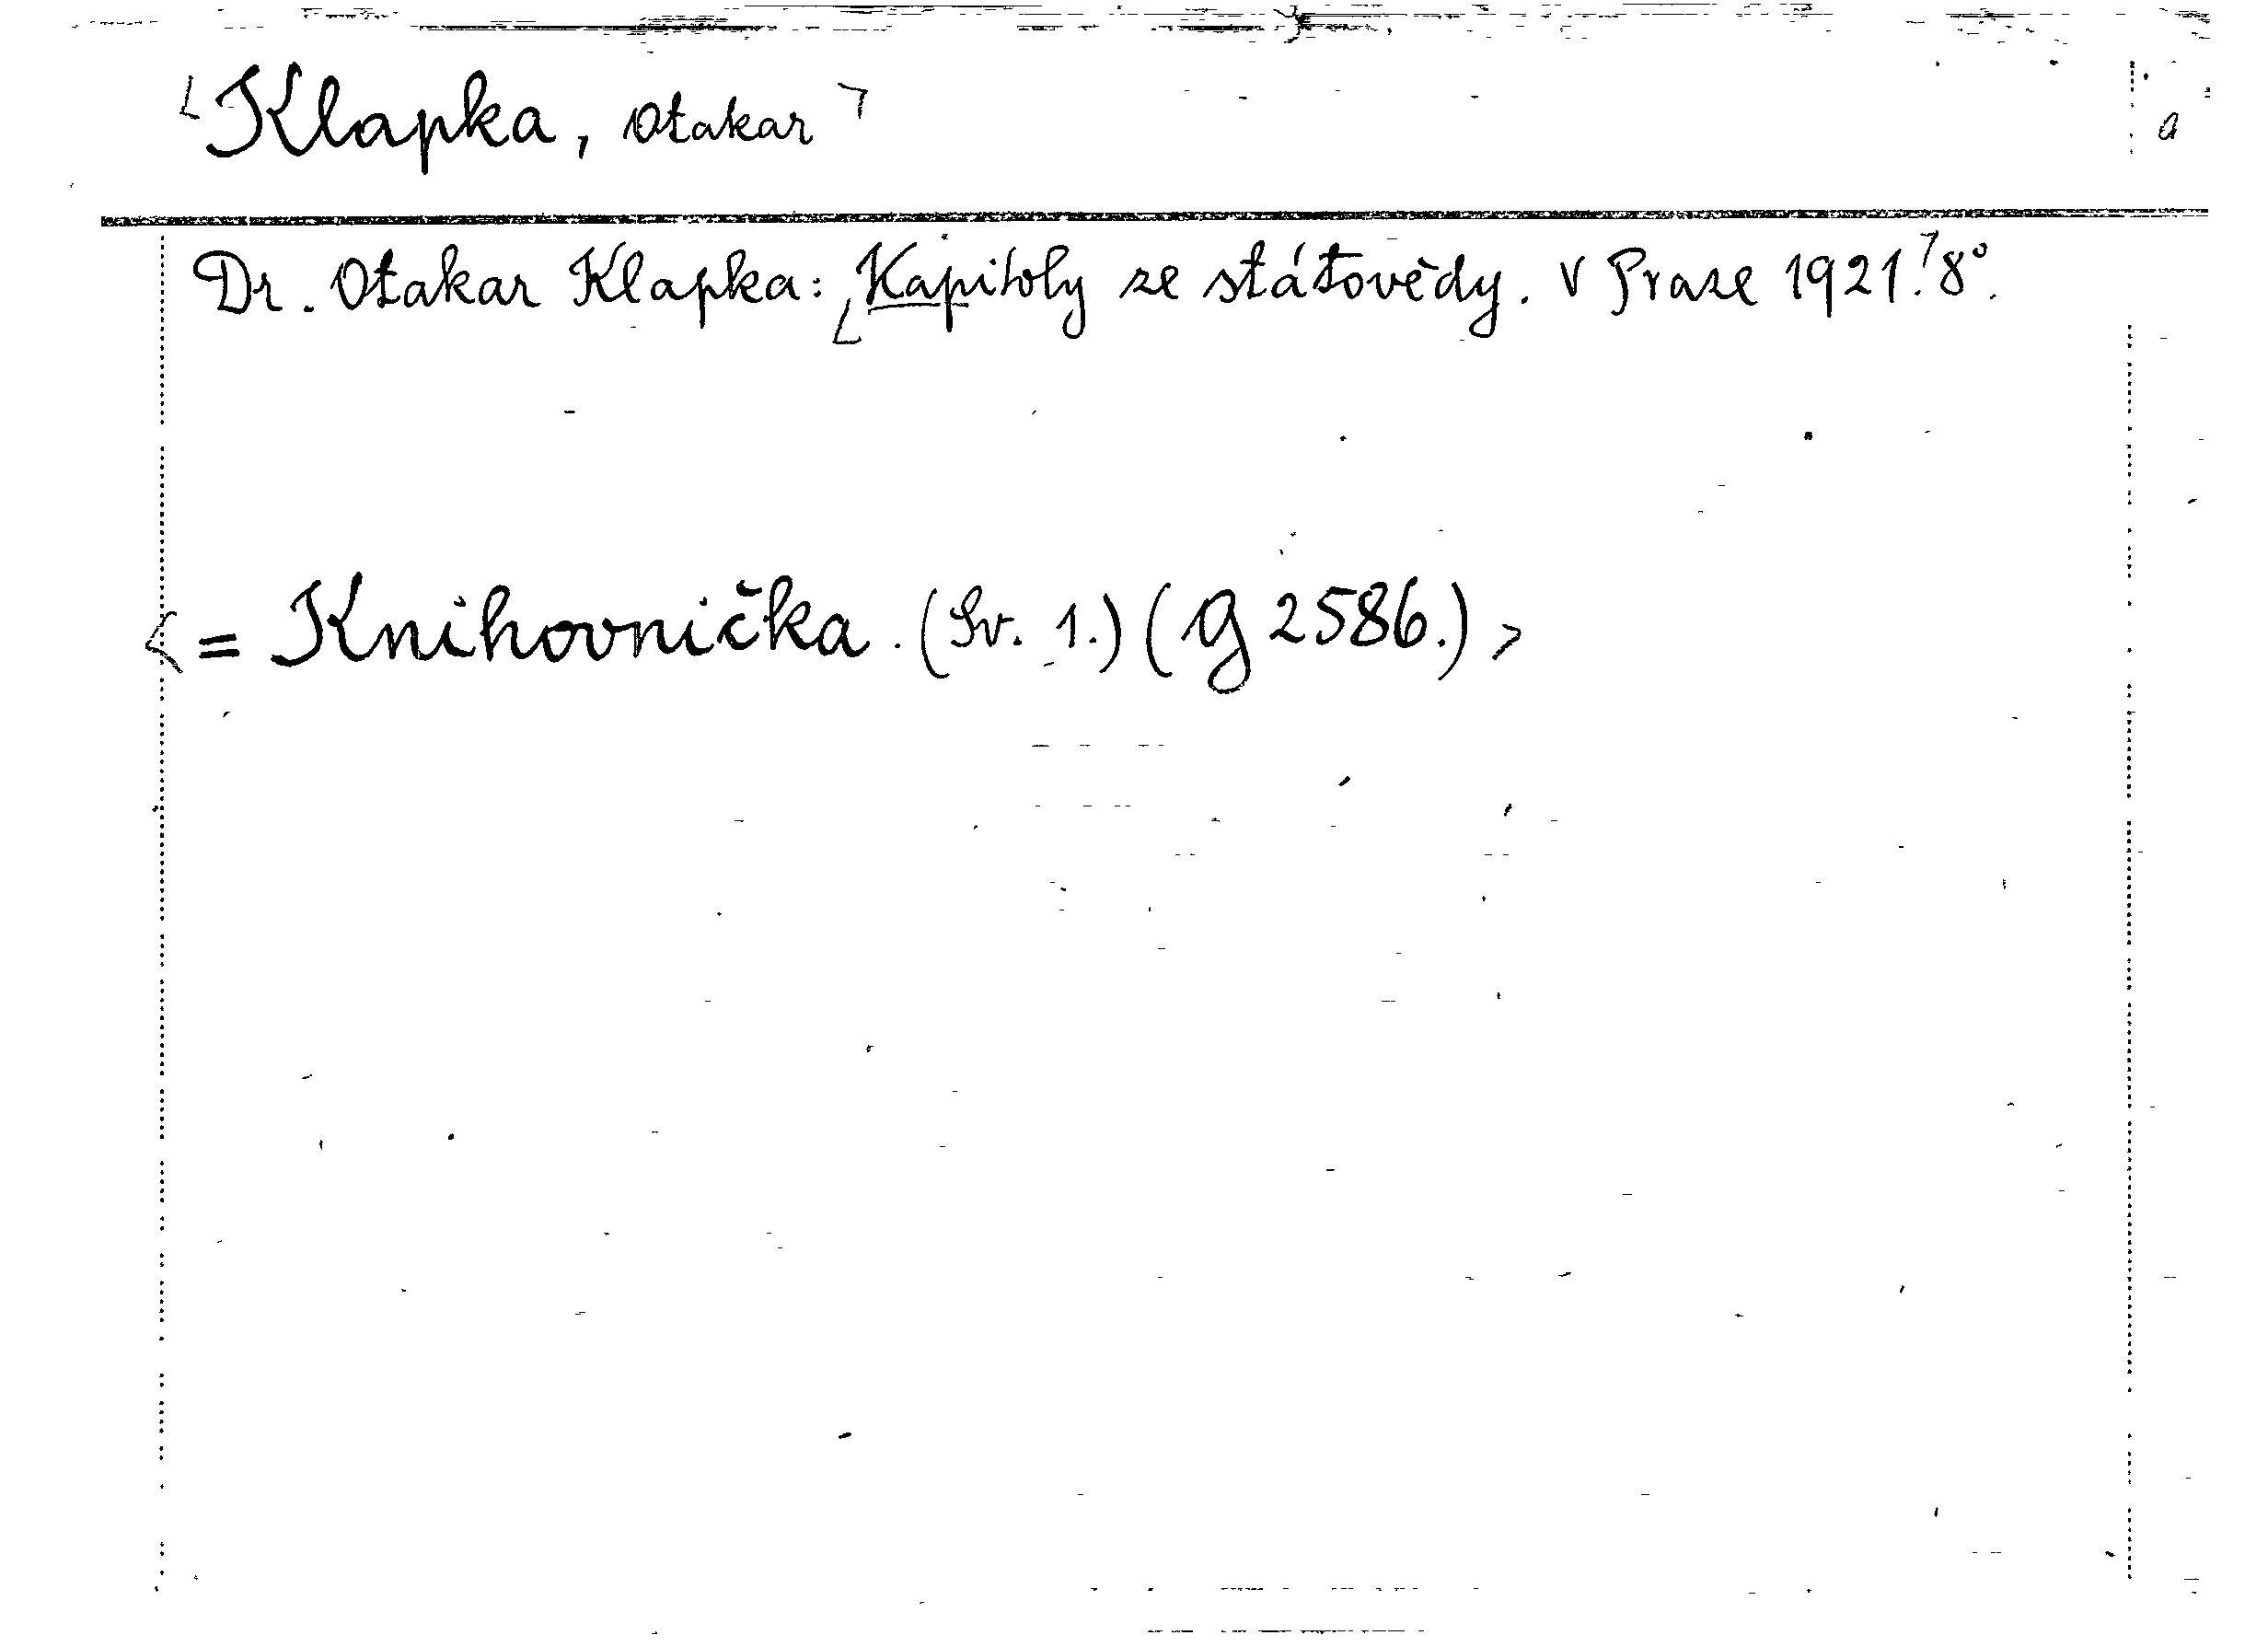 <Klapka, Otakar> a
Dr. Otakar Klapka: <Kapitoly ze státovědy. V Praze 1921.> 8°.
<= Knihovnička. (Sv. 1.) (G 2586.)>